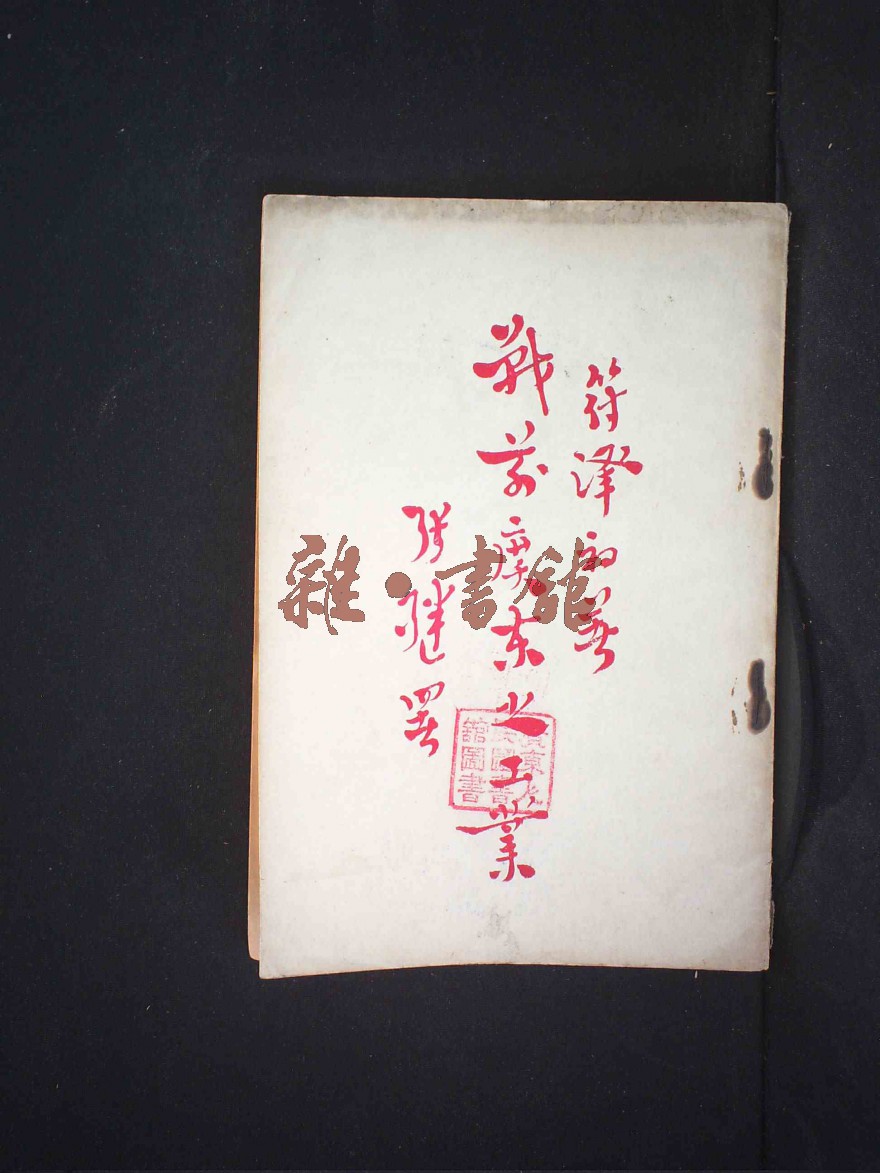 符澤初著
戰前廣東之工業
張繼署
雜·書館
館圖書